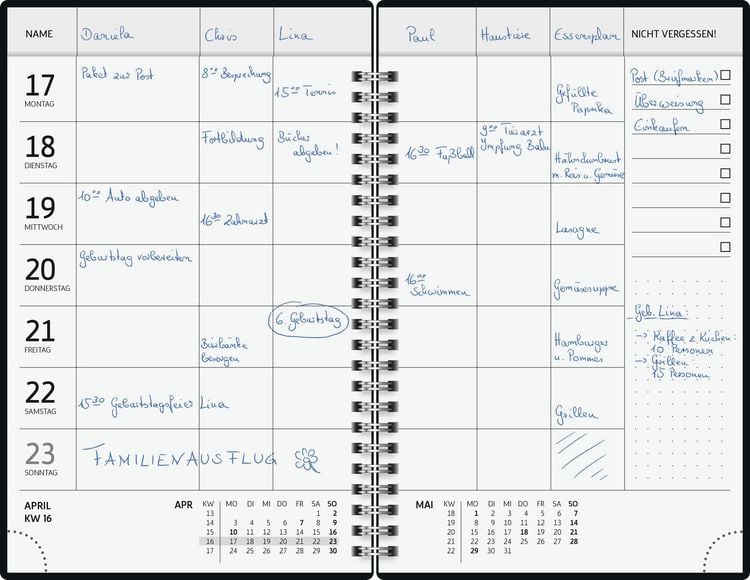 NAME Daniela Chris Lina Paul Haustiere Essensplan NICHT VERGESSEN!
17 MONTAG
Paket zur Post
8⁰⁰ Besprechung
15⁰⁰ Tennis
Gefüllte
Paprika
Post (Briefmarken)
Überweisung
Einkaufen
18 DIENSTAG
Fortbildung
Bücher
abgeben!
16³⁰ Fußball
9⁰⁰ Tierarzt
Impfung Balu
Hähnchenbrust
m. Reis u. Gemüse
19 MITTWOCH
10⁰⁰ Auto abgeben
16³⁰ Zahnarzt
Lasagne
20 DONNERSTAG
Geburtstag vorbereiten
16⁰⁰
Schwimmen
Gemüsesuppe
21 FREITAG
Bierbänke
besorgen
6. Geburtstag
Hamburger
u. Pommes
Geb. Lina:
→ Kaffee & Kuchen:
10 Personen
→ Grillen:
15 Personen
22 SAMSTAG
15³⁰ Geburtstagsfeier Lina
Grillen
23 SONNTAG
FAMILIENAUSFLUG
APRIL
KW 16
APR KW MO DI MI DO FR SA SO
13 1 2
14 3 4 5 6 7 8 9
15 10 11 12 13 14 15 16
16 17 18 19 20 21 22 23
17 24 25 26 27 28 29 30
MAI KW MO DI MI DO FR SA SO
18 1 2 3 4 5 6 7
19 8 9 10 11 12 13 14
20 15 16 17 18 19 20 21
21 22 23 24 25 26 27 28
22 29 30 31